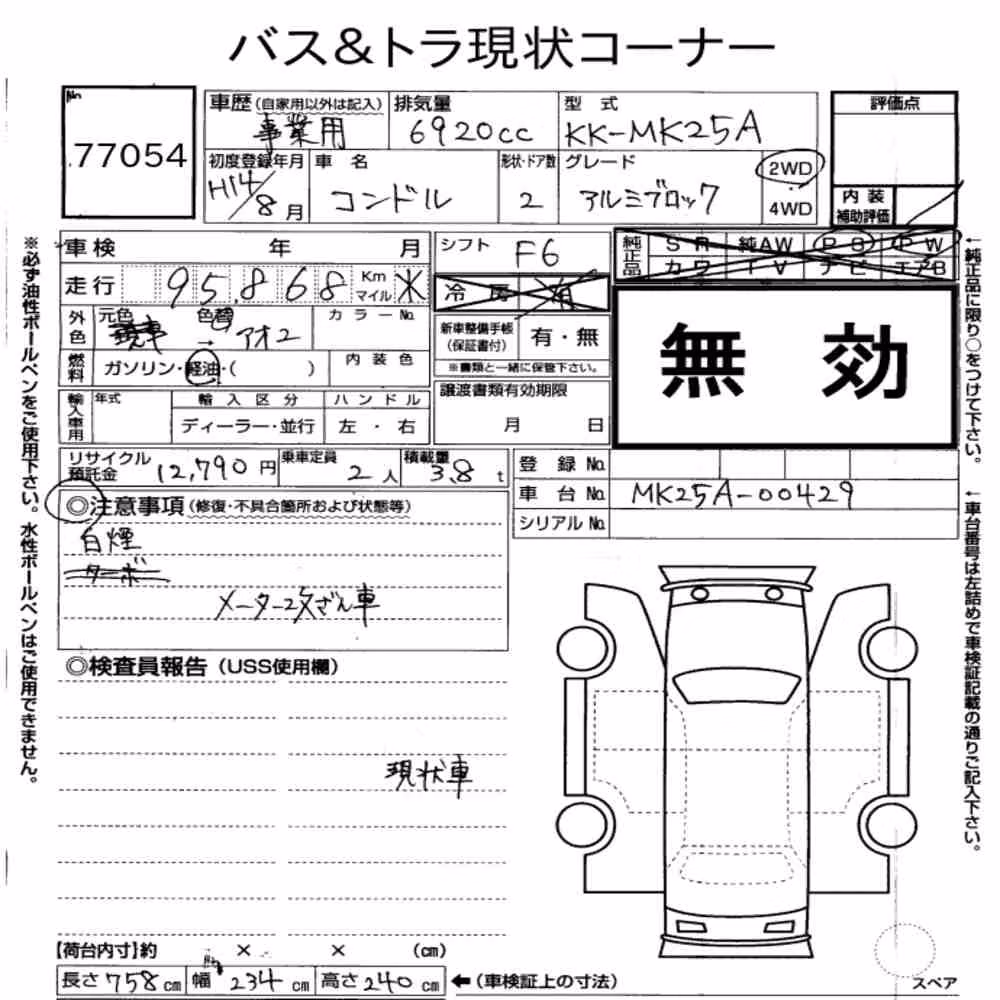 バス&トラ現状コーナー
No
77054
車歴(自家用以外は記入) 事業用
排気量 6920cc
型式 KK-MK25A
評価点
初度登録年月 H14/8月
車名 コンドル
形状・ドア数 2
グレード アルミブロック
2WD
4WD
内装
補助評価
車検 年 月
シフト F6
純正品 SR 純AW PS PW
カワ TV ナビ エアB
走行 95,868 Km
マイル
冷房
外色 元色 色替 → アオ2
カラーNo.
新車整備手帳
(保証書付) 有・無
※書類と一緒に保管下さい。
無効
燃料 ガソリン・軽油・( )
内装色
輸入車用 年式 輸入区分 ハンドル
ディーラー・並行 左・右
譲渡書類有効期限
月 日
リサイクル
預託金 12,790円
乗車定員 2人
積載量 3.8t
登録No.
車台No. MK25A-00429
シリアルNo.
◎注意事項(修復・不具合箇所および状態等)
白煙
ターボ
メーター改ざん車
◎検査員報告(USS使用欄)
現状車
【荷台内寸】約 × × (cm)
長さ758cm 幅234cm 高さ240cm ←(車検証上の寸法)
スペア
※必ず油性ボールペンをご使用下さい。水性ボールペンはご使用できません。
←純正品に限り○をつけて下さい。
←車台番号は左詰めで車検証記載の通りご記入下さい。